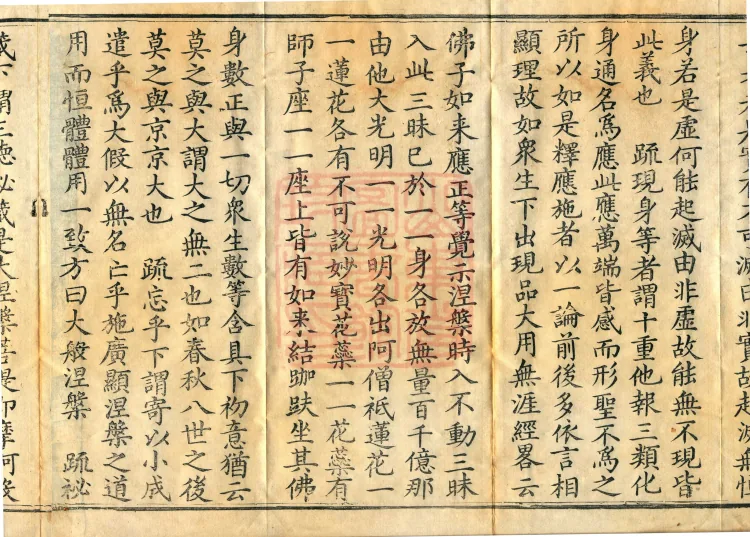 可滅由非實故起滅無恒
身若是虛何能起滅由非虛故能無不現皆
此義也　疏現身等者謂十重他報三類化
身通名爲應此應萬端皆感而形聖不爲之
所以如是釋應施者以一論前後多依言相
顯理故如衆生下出現品大用無涯經畧云
佛子如来應正等覺示涅槃時入不動三昧
入此三昧已於一一身各放無量百千億那
由他大光明一一光明各出阿僧祇蓮花一
一蓮花各有不可說妙寶花蘂一一花蘂有
師子座一一座上皆有如来結跏趺坐其佛
身數正與一切衆生數等含具下初意猶云
莫之與大謂大之無二也如春秋八世之後
莫之與京京大也　疏忘乎下謂寄以小成
遣乎爲大假以無名亡乎施廣顯涅槃之道
用而恒體體用一致方曰大般涅槃　疏祕
藏下謂三德祕藏是大涅槃若是即摩訶般